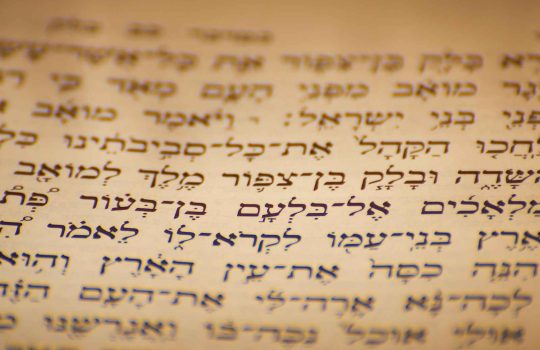 בָּלָק בֶּן־צִפּוֹר אֵת כָּל־אֲשֶׁר־
מוֹאָב מִפְּנֵי הָעָם מְאֹד כִּי
בְּנֵי יִשְׂרָאֵל: וַיֹּאמֶר מוֹאָב
הַקָּהָל אֶת־כָּל־סְבִיבֹתֵינוּ
הַשָּׂדֶה וּבָלָק בֶּן־צִפּוֹר מֶלֶךְ לְמוֹאָב
מַלְאָכִים אֶל־בִּלְעָם בֶּן־בְּעוֹר
אֶרֶץ בְּנֵי־עַמּוֹ לִקְרֹא־לוֹ לֵאמֹר
הִנֵּה כִסָּה אֶת־עֵין הָאָרֶץ וְהוּא
לְכָה־נָּא אָרָה־לִּי אֶת־הָעָם הַזֶּה
אוּלַי אוּכַל נַכֶּה־בּוֹ וַאֲגָרְשֶׁנּוּ